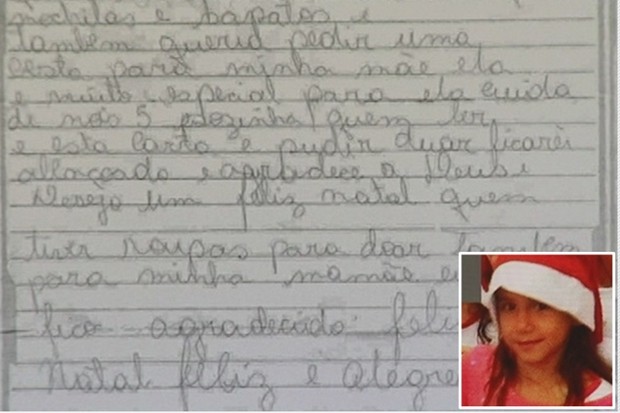 mochilas e sapatos e
também queria pedir uma
cesta para minha mãe ela
e muito especial para ela cuida
de nois 5 sozinha quem ler
e esta carta e pudir duar ficarei
abençoado e agradece a Deus e
Desejo um feliz natal quem
tiver roupas para doar também
para minha mamãe eu
fico agradecido feliz
Natal feliz e alegre